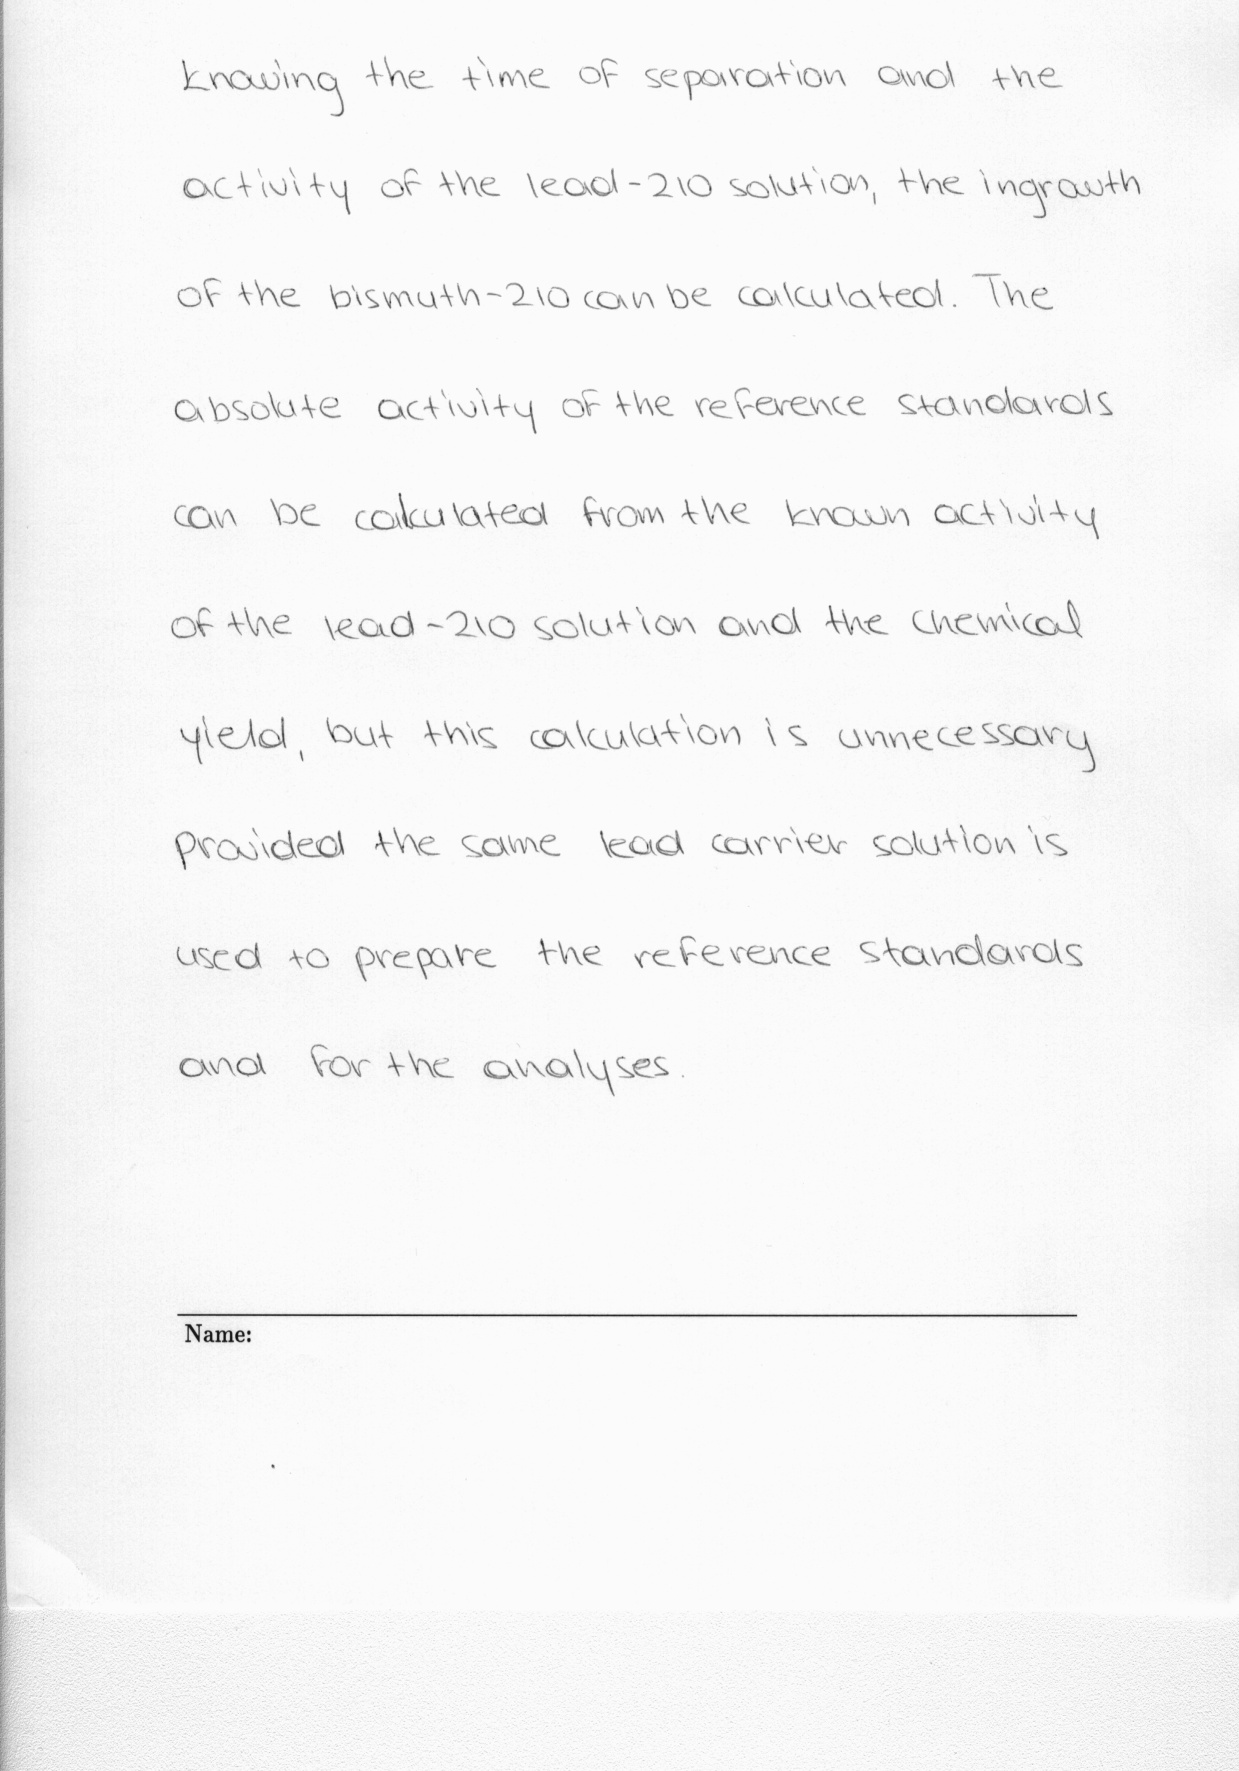 Knowing the time of separation and the
activity of the lead-210 solution, the ingrowth
of the bismuth-210 can be calculated. The
absolute activity of the reference standards
can be calculated from the known activity
of the lead-210 solution and the chemical
yield, but this calculation is unnecessary
provided the same lead carrier solution is
used to prepare the reference standards
and for the analyses.
Name: